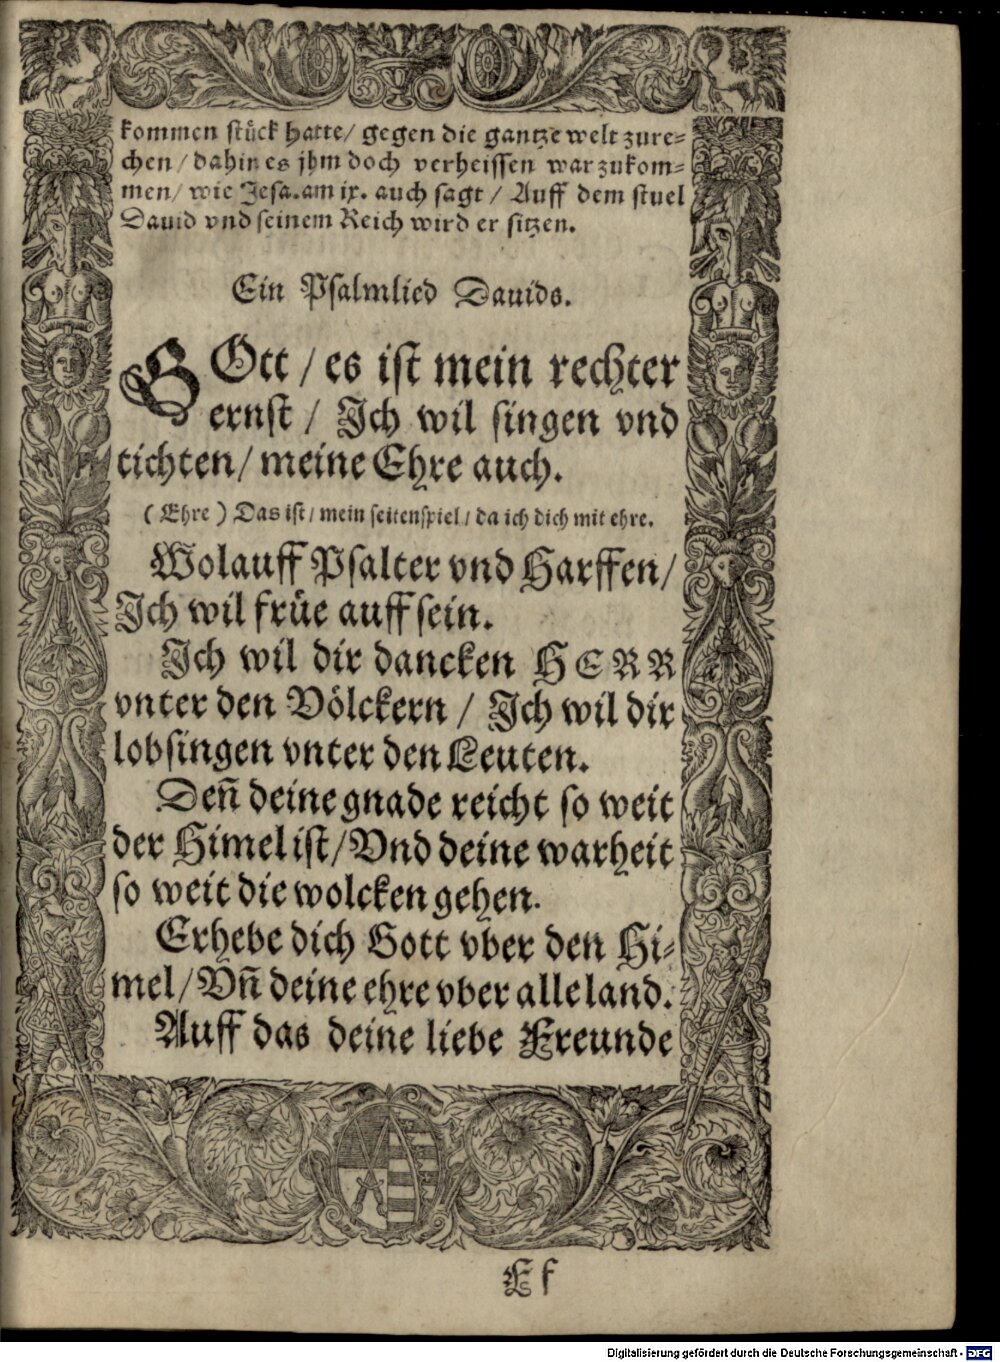 kommen stück hatte/ gegen die gantze welt zure-
chen/ dahin es jhm doch verheissen war zukom-
men/ wie Jesa. am ix. auch sagt/ Auff dem stuel
Dauid vnd seinem Reich wird er sitzen.
Ein Psalmlied Dauids.
GOtt/ es ist mein rechter
ernst/ Ich wil singen vnd
tichten/ meine Ehre auch.
(Ehre) Das ist/ mein seitenspiel/ da ich dich mit ehre.
Wolauff Psalter vnd Harffen/
Ich wil früe auff sein.
Ich wil dir dancken HERR
vnter den Völckern/ Ich wil dir
lobsingen vnter den Leuten.
Deñ deine gnade reicht so weit
der Himel ist/ Vnd deine warheit
so weit die wolcken gehen.
Erhebe dich Gott vber den Hi-
mel/ Vñ deine ehre vber alle land.
Auff das deine liebe Freunde
Ef
Digitalisierung gefördert durch die Deutsche Forschungsgemeinschaft - DFG